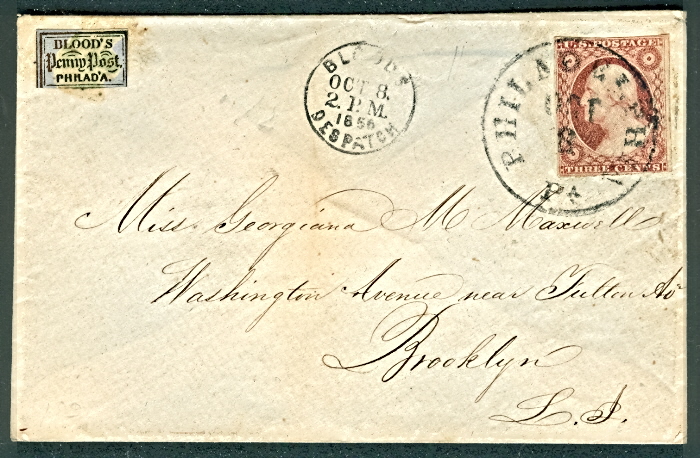 BLOOD'S
Penny Post.
PHILAD'A.
BLOOD'S
OCT 8.
2. P.M.
1856
DESPATCH
U.S. POSTAGE
THREE CENTS
PHILADELPHIA
OCT
8
Pa
Miss. Georgiana M Maxwell
Washington Avenue near Fulton Av
Brooklyn
L. I.